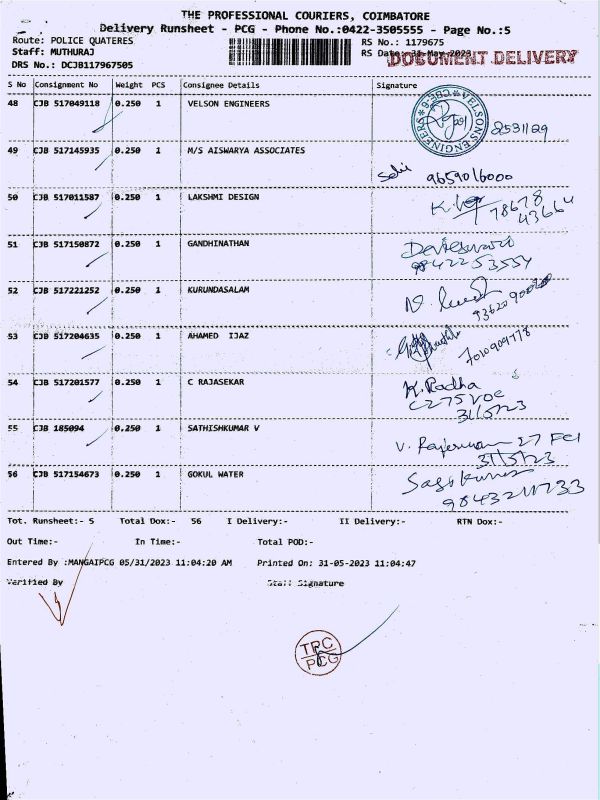 THE PROFESSIONAL COURIERS, COIMBATORE
Delivery Runsheet - PCG - Phone No.:0422-3505555 - Page No.:5
Route: POLICE QUATERES RS No.: 1179675
Staff: MUTHURAJ RS Date: 31-May-2023
DOCUMENT DELIVERY
DRS No.: DCJB117967505
S No Consignment No Weight PCS Consignee Details Signature
48 CJB 517049118 0.250 1 VELSON ENGINEERS
VELSONS ENGINEERS CBE-6
2531129
49 CJB 517145935 0.250 1 M/S AISWARYA ASSOCIATES
9659016000
50 CJB 517011587 0.250 1 LAKSHMI DESIGN
78678
43664
51 CJB 517150872 0.250 1 GANDHINATHAN
9842253554
52 CJB 517221252 0.250 1 KURUNDASALAM
53 CJB 517204635 0.250 1 AHAMED IJAZ
7010909778
54 CJB 517201577 0.250 1 C RAJASEKAR
K.Radha
C275 VOC
31/5/23
55 CJB 185094 0.250 1 SATHISHKUMAR V
27 FCI
31/5/23
56 CJB 517154673 0.250 1 GOKUL WATER
Tot. Runsheet:- 5 Total Dox:- 56 I Delivery:- II Delivery:- RTN Dox:-
Out Time:- In Time:- Total POD:-
Entered By :MANGAIPCG 05/31/2023 11:04:20 AM Printed On: 31-05-2023 11:04:47
Verified By Staff Signature
TPC
PCG